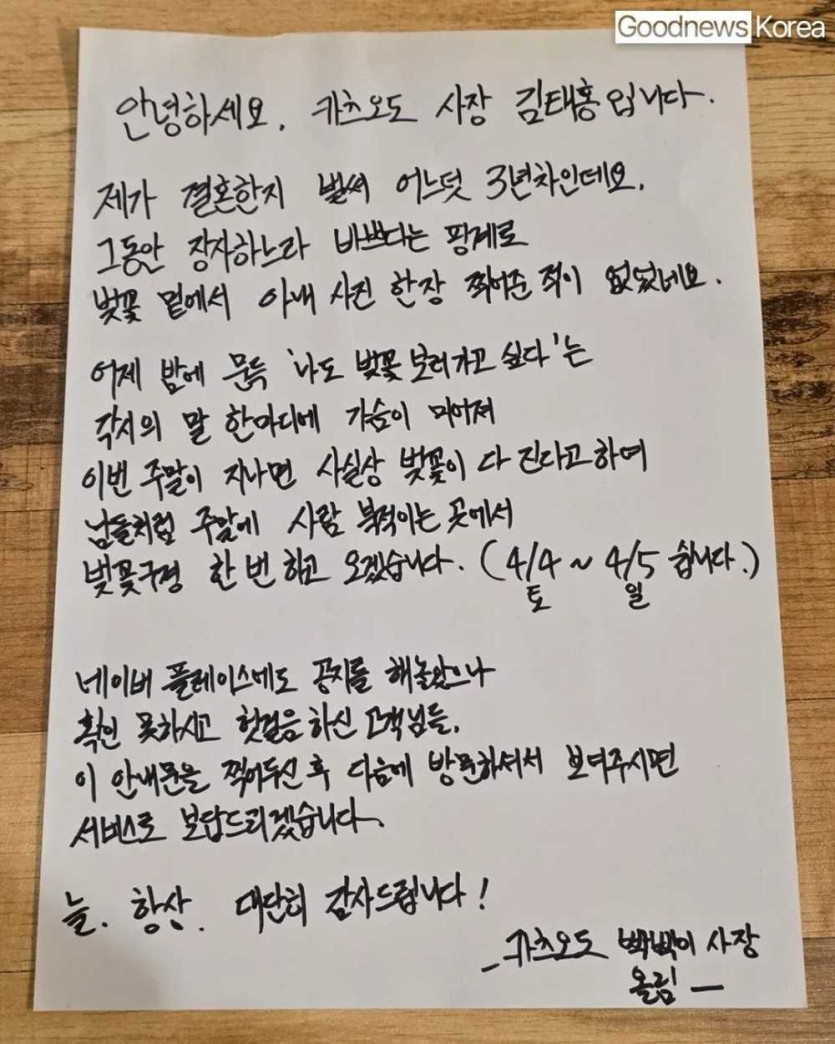 Goodnews Korea
안녕하세요. 카츠오도 사장 김태홍입니다.
제가 결혼한지 벌써 어느덧 3년차인데요.
그동안 장사하느라 바쁘다는 핑계로
벚꽃 밑에서 아내 사진 한장 찍어준 적이 없었네요.
어제 밤에 문득 '나도 벚꽃 보러가고 싶다'는
각시의 말 한마디에 가슴이 미어져
이번 주말이 지나면 사실상 벚꽃이 다 진다고하여
남들처럼 주말에 사람 북적이는 곳에서
벚꽃구경 한 번 하고 오겠습니다. (4/4 ~ 4/5 쉽니다.)
토 일
네이버 플레이스에도 공지를 해놓았으나
확인 못하시고 헛걸음 하신 고객님들.
이 안내문을 찍어두신 후 다음에 방문하셔서 보여주시면
서비스로 보답드리겠습니다.
늘. 항상. 대단히 감사드립니다!
_카츠오도 빡빡이 사장
올림 —